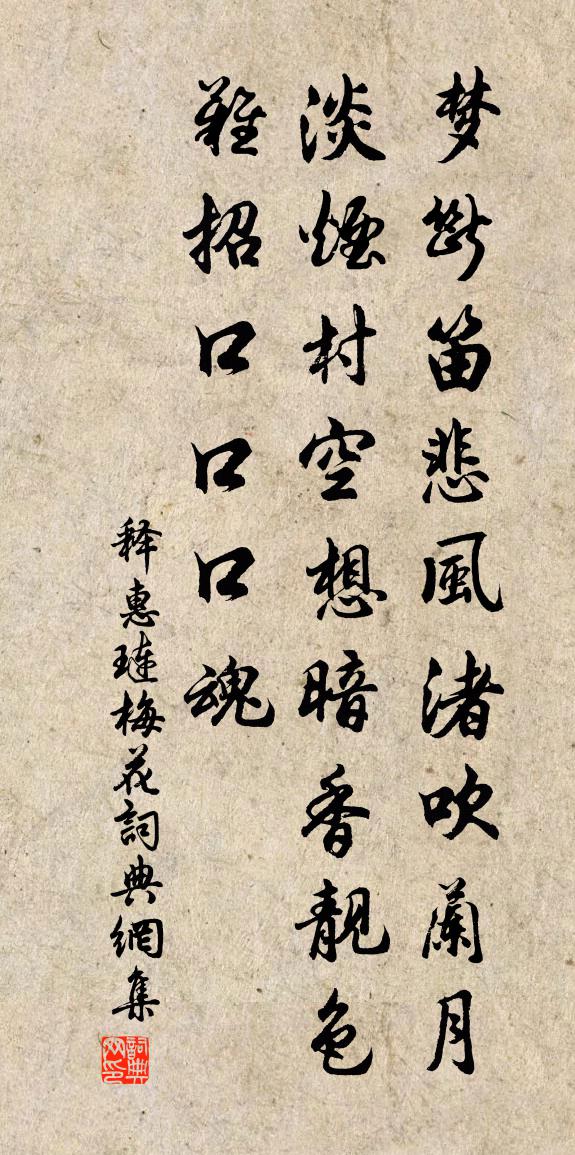 梦斷笛悲風渚吹蘭月
淡煙村空想暗香靚色
難招口口口魂
释惠璉梅花詞典網集
詞典网印